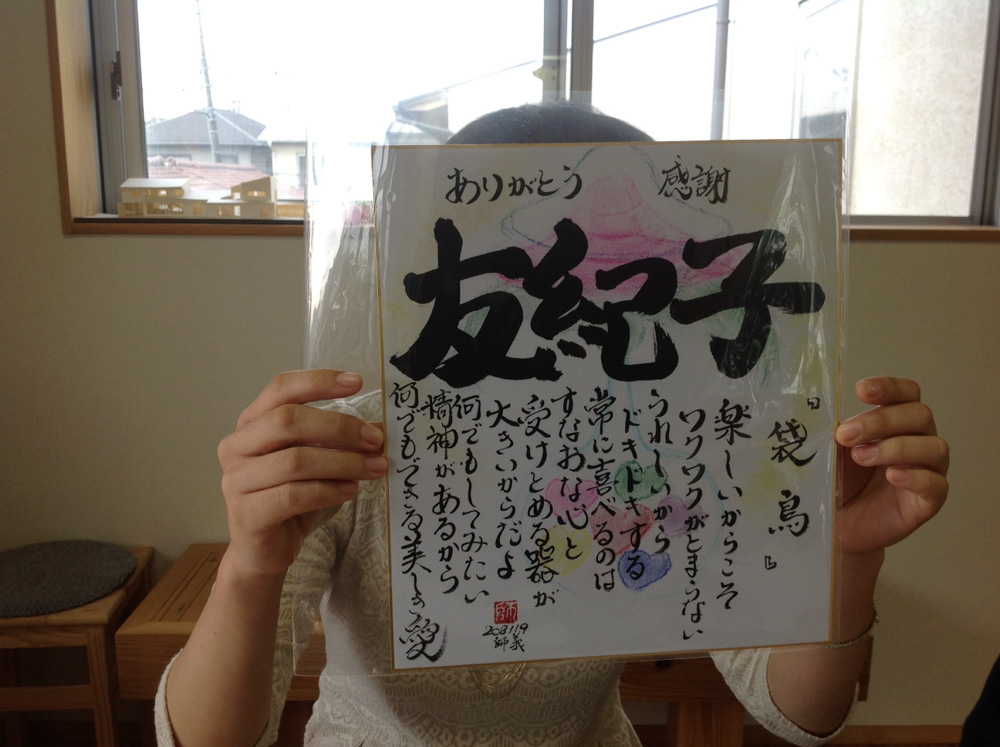 ありがとう
感謝
友紀子
『袋鳥』
楽しいからこそ
ワクワクがとまらない
うれしいから
ドキドキする
常に喜べるのは
すなおな心と
受けとめる器が
大きいからだよ
何でもしてみたい
精神があるから
何でもできる美しき愛
師義